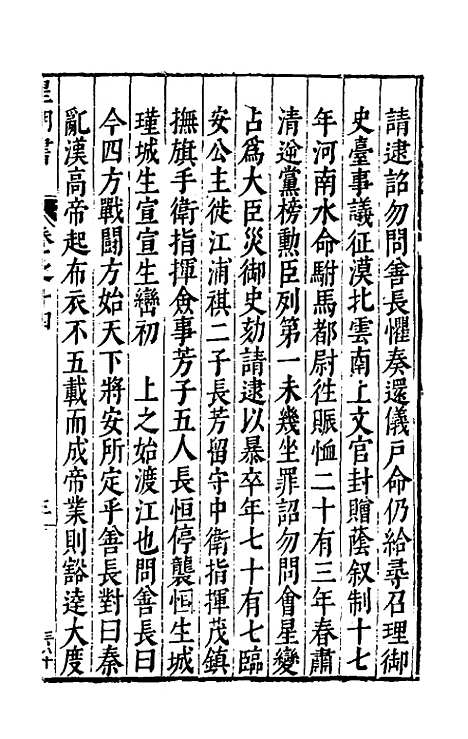 請逮詔勿問善長懼奏還儀戶命仍給尋召理御
史臺事議征漠北雲南上文官封贈蔭叙制十七
年河南水命駙馬都尉往賑恤二十有三年春肅
清逆黨榜勲臣列第一未幾坐罪詔勿問會星變
占爲大臣災御史劾請逮以暴卒年七十有七臨
安公主徙江浦祺二子長芳留守中衛指揮茂鎮
撫旗手衛指揮僉事芳子五人長恒停襲恒生城
瑾城生宣宣生巒初　上之始渡江也問善長曰
今四方戰鬪方始天下將安所定乎善長對曰秦
亂漢高帝起布衣不五載而成帝業則豁達大度
皇明書
卷之十四
三